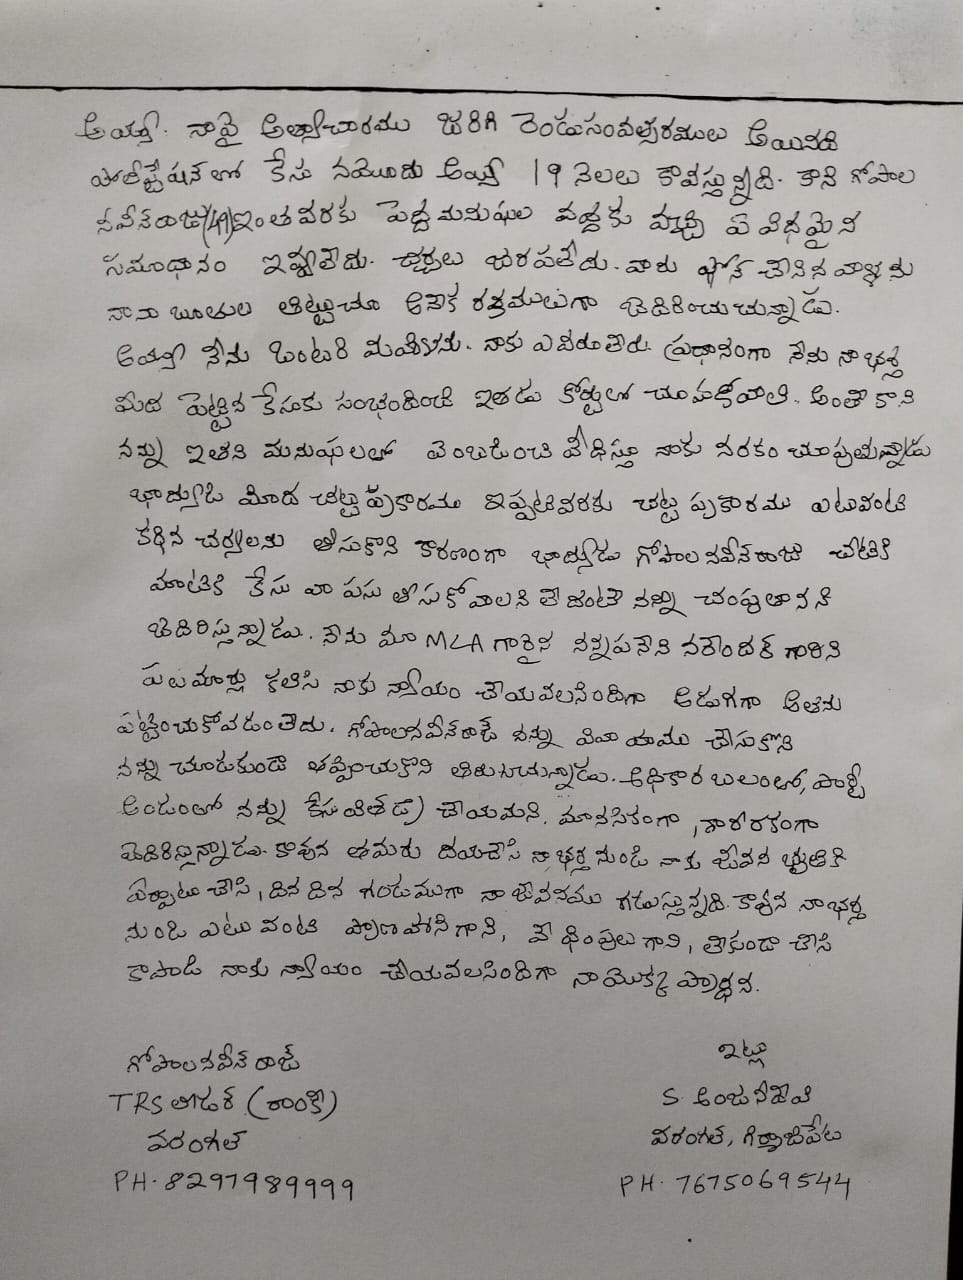 అయ్యా. నాపై అత్యాచారము జరిగి రెండుసంవత్సరములు అయినది
పోలీస్టేషన్‌లో కేసు నమోదు అయ్యి 19 నెలలు కావస్తున్నది. కాని గోపాల
నవీన్‌రాజు(49)ఇంతవరకు పెద్దమనుషుల వద్దకు వచ్చి ఏ విధమైన
సమాధానం ఇవ్వలేదు. చర్చలు జరపలేదు. వారు ఫోన్ చేసిన వాళ్ళను
నానా బూతుల తిట్టుచూ అనేక రకములుగా బెదిరించుచున్నాడు.
అయ్యా నేను ఒంటరి మహిళను. నాకు ఎవరూలేరు. ప్రధానంగా నేను నా భర్త
మీద పెట్టిన కేసుకు సంభందించి ఇతడు కోర్టులో చూసుకోవాలి. అంతే కాని
నన్ను ఇతని మనుషులతో వెంబడించి వేధిస్తూ నాకు నరకం చూపుతున్నాడు
భాద్యుడి మీద చట్టప్రకారము ఇప్పటివరకు చట్ట ప్రకారము ఎటువంటి
కఠిన చర్యలను తీసుకొని కారణంగా భాద్యుడు గోపాల నవీన్‌రాజు చేటికి
మాటికి కేసు వాపసు తీసుకోవాలని లేదంటే నన్ను చంపుతానని
బెదిరిస్తున్నాడు. నేను మా MLA గారైన నన్నపనేని నరేందర్ గారిని
పలుమార్లు కలిసి నాకు న్యాయం చేయవలసిందిగా అడుగగా అతను
పట్టించుకోవడంలేదు. గోపాలనవీన్‌రాజ్ నన్ను వివాహము చేసుకొని
నన్ను చూడకుండా తప్పించుకొని తిరుగుచున్నాడు. అధికార బలంతో, పార్టీ
అండంతో నన్ను కేసు విత్‌డ్రా చేయమని, మానసికంగా, శారీరకంగా
బెదిరిస్తున్నాడు. కావున తమరు దయచేసి నా భర్త నుండి నాకు జీవన భృతికి
ఏర్పాటు చేసి, దిన దిన గండముగా నా జీవనము గడుస్తున్నది. కావున నా భర్త
నుండి ఎటు వంటి ప్రాణహాని గాని, వేధింపులు గాని, లేకుండా చేసి
కాపాడి నాకు న్యాయం చేయవలసిందిగా నా యొక్క ప్రార్ధన.
గోపాల నవీన్ రాజ్
TRS లీడర్ (రాంకీ)
వరంగల్
PH. 8297989999
ఇట్లు
S అంజనీదేవి
వరంగల్, గిర్మాజిపేట
PH. 7675069544